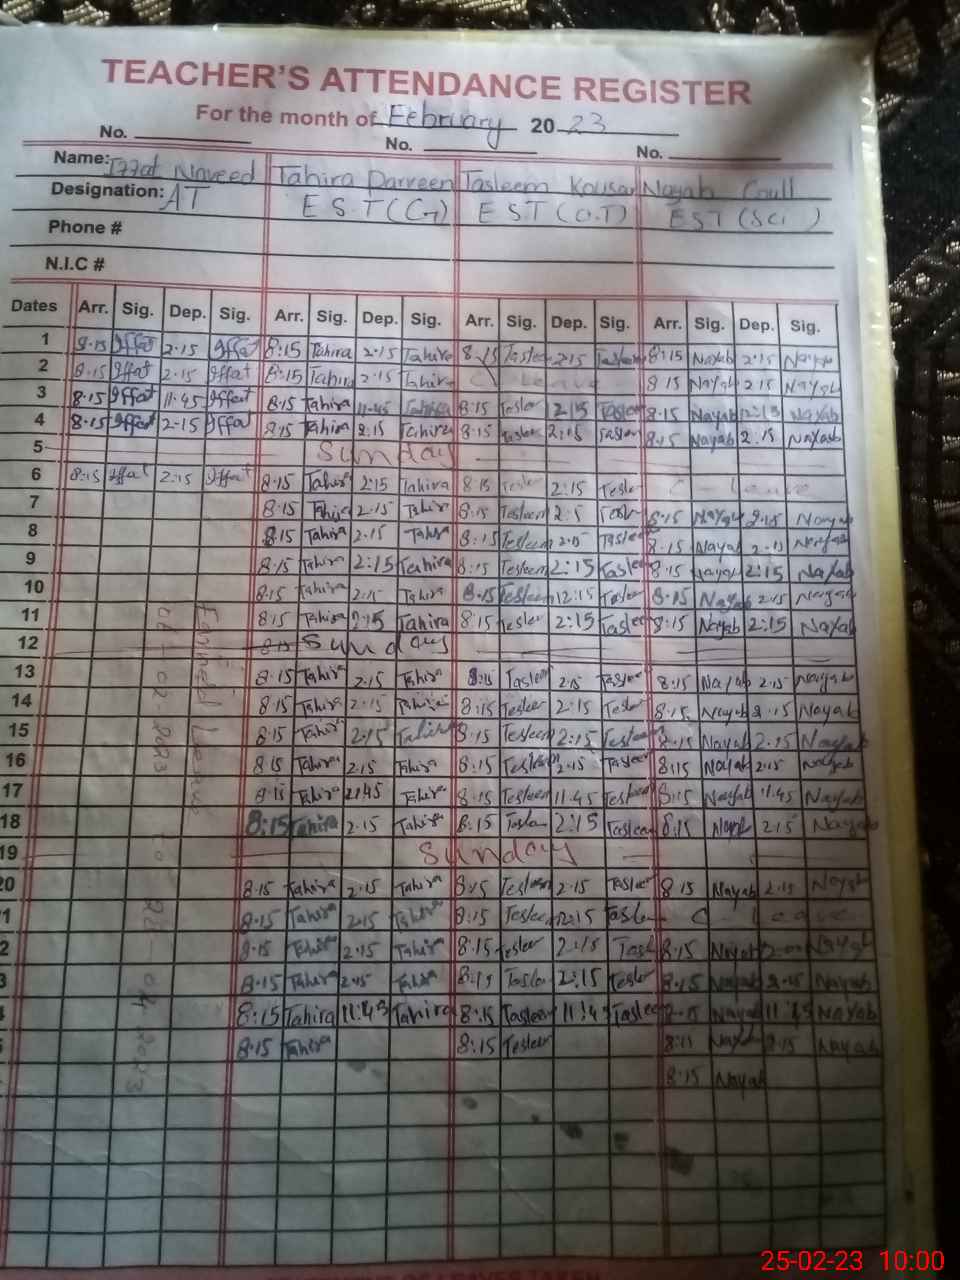 TEACHER'S ATTENDANCE REGISTER
For the month of February 2023
No. No. No.
Name: Iffat Naveed Tahira Parveen Tasleem Kousar Nayab
Designation: AT E.S.T (C.T) E S.T (O.T) EST (Sci)
Phone #
N.I.C #
Dates Arr. Sig. Dep. Sig. Arr. Sig. Dep. Sig. Arr. Sig. Dep. Sig. Arr. Sig. Dep. Sig.
1 8.15 Iffat 2.15 Iffat 8:15 Tahira 2.15 Tahira 8.15 Tasleem 2.15 Tasleem 8:15 Nayab 2.15 Nayab
2 8.15 Iffat 2.15 Iffat 8:15 Tahira 2.15 Tahira C Leave 8 15 Nayab 2 15 Nayab
3 8.15 Iffat 11.45 Iffat 8.15 Tahira 11.45 Tahira 8:15 Tasleem 12 15 Tasleem 8.15 Nayab Nayab
4 8.15 Iffat 2.15 Iffat 8.15 Tahira 2.15 Tahira 8:15 Tasleem 2:15 Tasleem 8.15 Nayab 2.15 Nayab
5 Sunday
6 8:15 Iffat 2:15 Iffat 8.15 Tahira 2:15 Tahira 8.15 Tesleem 2:15 Tesleem C - Leave
7 8.15 Tahira 2.15 Tahira 8.15 Tesleem 8.15 Nayab 2.15 Nayab
8 8.15 Tahira 2.15 Tahira 8:15 Tesleem 2.15 Tasleem 8.15 Nayab 2.15 Nayab
9 8.15 Tahira 2:15 Tahira 8:15 Tesleem 2:15 Tasleem 8.15 Nayab 2:15 Nayab
10 8.15 Tahira 2.15 Tahira 8.15 Tesleem 12:15 Tesleem 8.15 Nayab 2.15 Nayab
11 8.15 Tahira 2:15 Tahira 8:15 Tesleem 2:15 Tasleem 8:15 Nayab 2:15 Nayab
12 8.15 Sunday
13 8.15 Tahira 2.15 Tahira 8:15 Tasleem 2.15 Tasleem 8.15 Nayab 2.15 Nayab
14 8.15 Tahira 2.15 Tahira 8:15 Tesleem 2.15 Tesleem 8.15 Nayab 2.15 Nayab
15 8.15 Tahira 2.15 Tahira 8.15 Tesleem 2:15 Tesleem 8.15 Nayab 2.15 Nayab
16 8.15 Tahira 2.15 Tahira 8:15 Tesleem 2.15 Tasleem 8:15 Nayab 2.15 Nayab
17 8.15 Tahira Tahira 8.15 Tesleem 11.45 Tesleem 8:15 Nayab 11.45 Nayab
18 8:15 Tahira 2.15 Tahira 8.15 Tasleem 2:15 Tasleem 8.15 Nayab 2.15 Nayab
19 Sunday
20 8.15 Tahira 2.15 Tahira 8:15 Tesleem 2.15 Tasleem 8.15 Nayab 2.15 Nayab
1 8.15 Tahira 2.15 Tahira 8:15 Tesleem 12:15 Tasleem C - Leave
2 8.15 Tahira 2.15 Tahira 8:15 Tesleem 2:15 Tasleem 8.15 Nayab Nayab
3 8.15 Tahira 2.15 Tahira Tasleem 2:15 Tesleem 8.15 Nayab 2.15 Nayab
8:15 Tahira 11:45 Tahira 8:15 Tasleem 11:45 Tasleem Nayab 11:45 Nayab
8.15 Tahira 8:15 Tesleem 8:15 Nayab Nayab
8:15 Nayab
Earned Leave
to
25-02-23 10:00